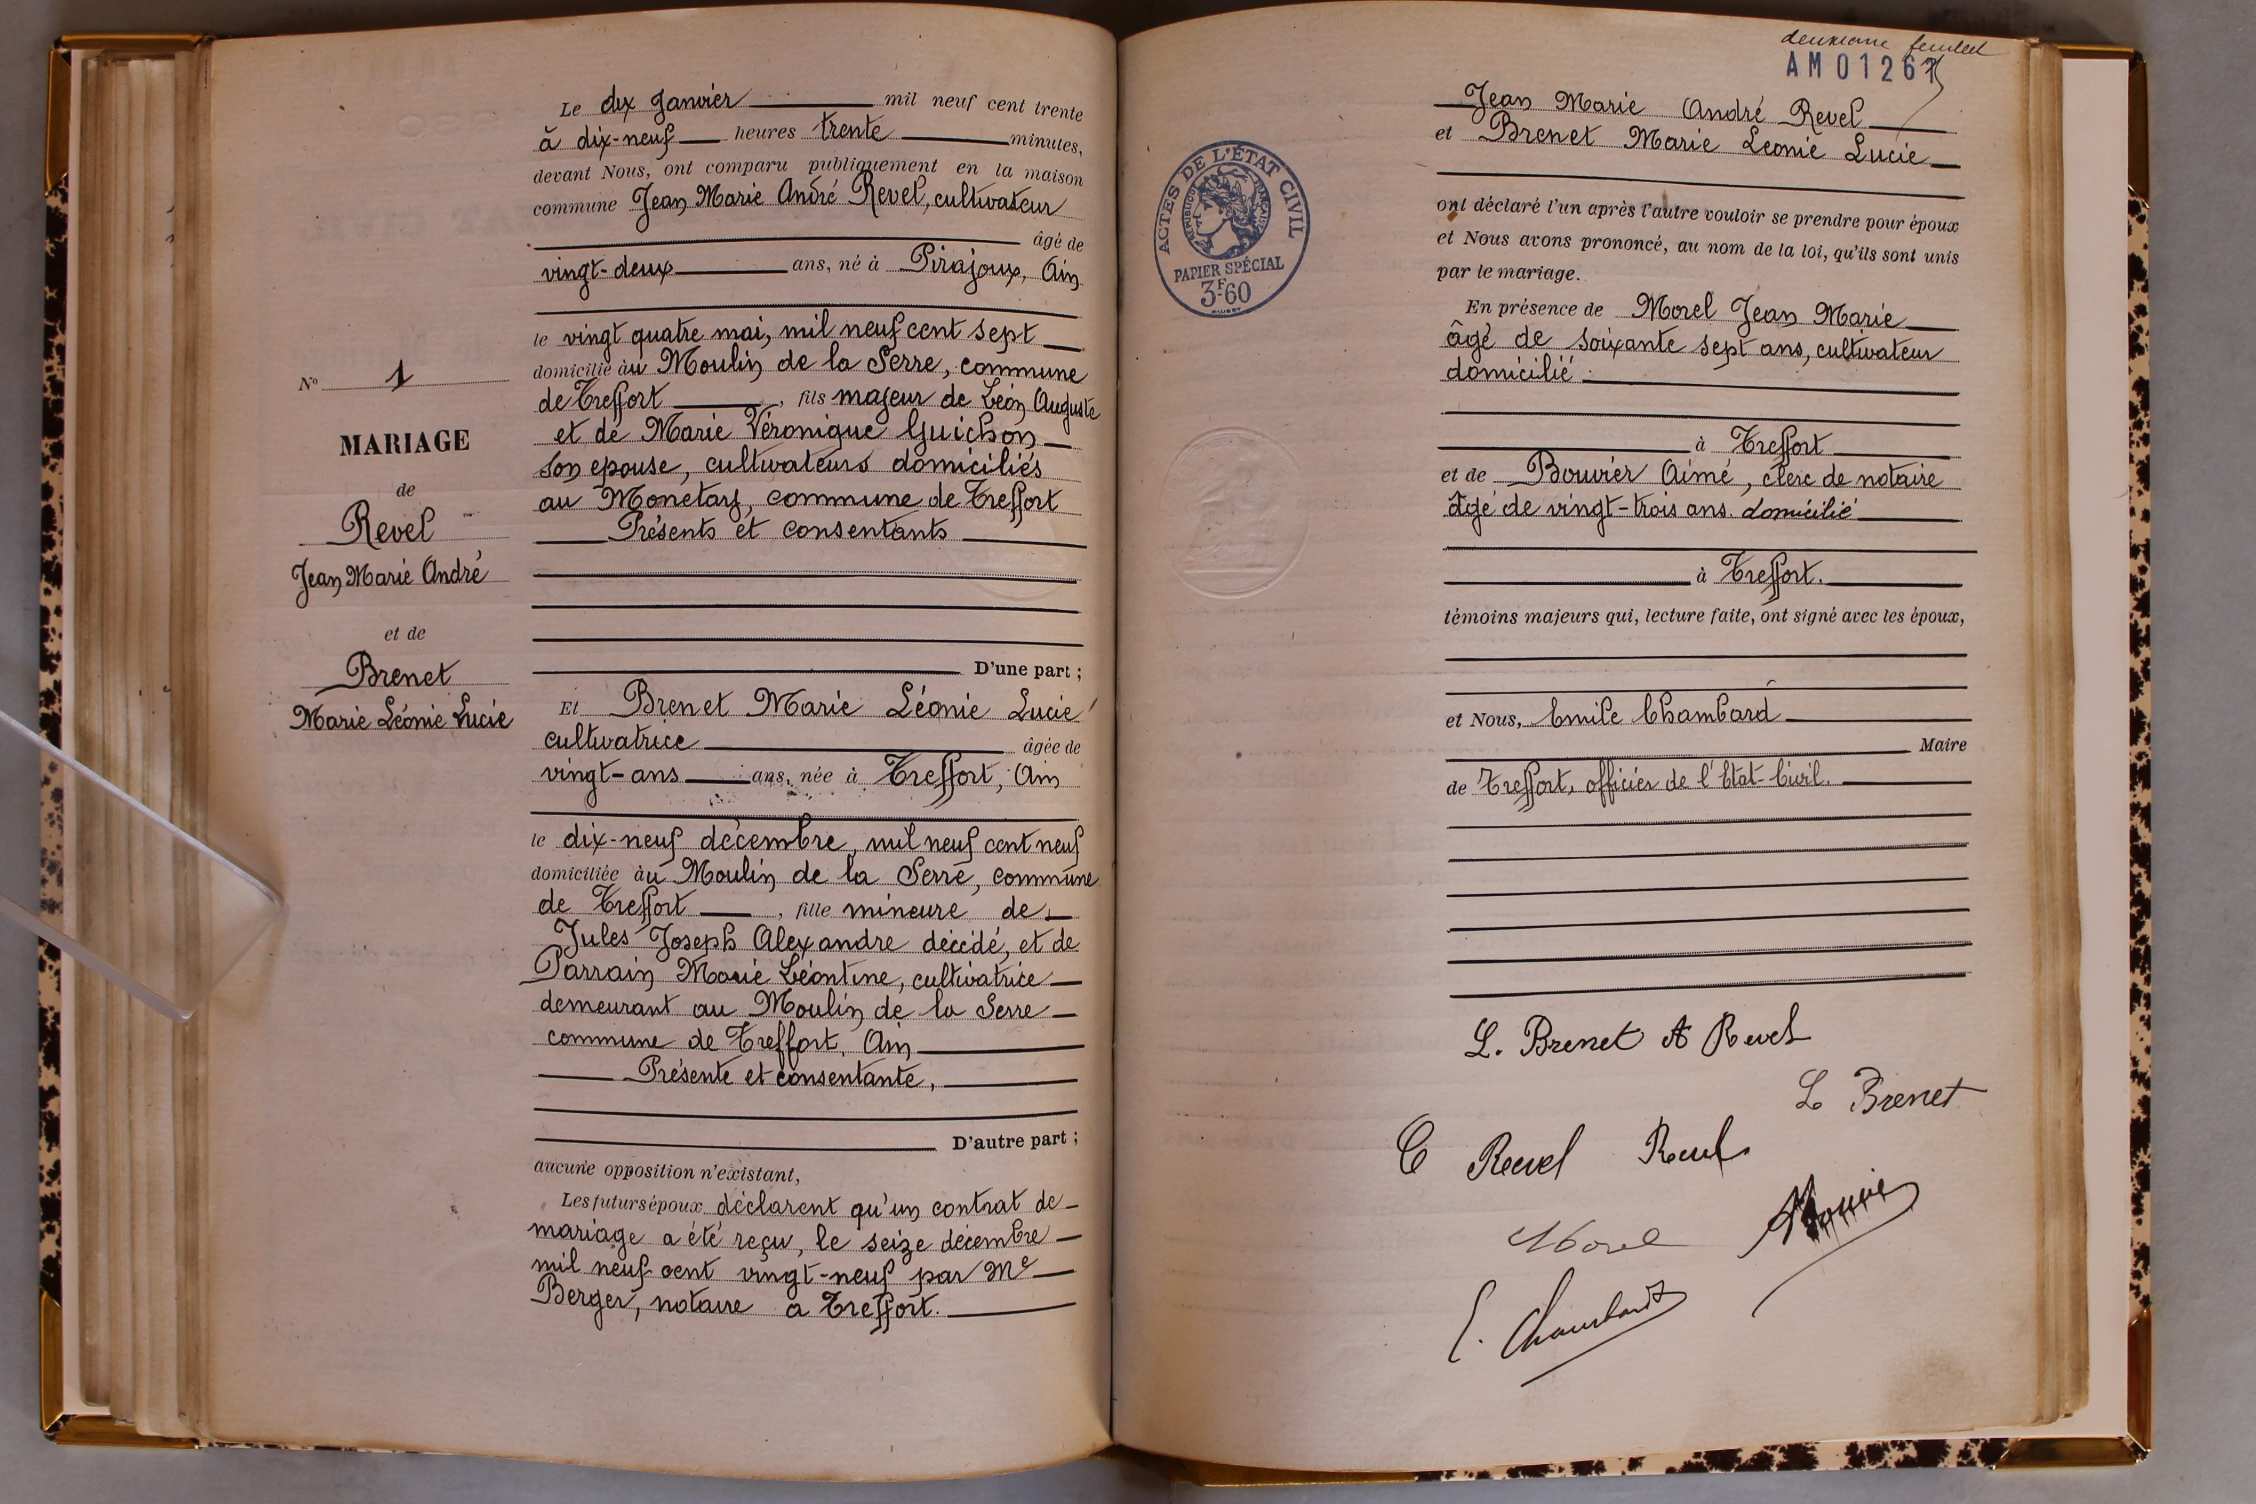 Le dix Janvier mil neuf cent trente
à dix-neuf heures trente minutes,
devant Nous, ont comparu publiquement en la maison
commune Jean Marie André Revel, cultivateur
âgé de
vingt-deux ans, né à Pirajoux, Ain
le vingt quatre mai, mil neuf cent sept
domicilié àu Moulin de la Serre, commune
de Treffort, fils majeur de Léon Auguste
et de Marie Véronique Guichon
son epouse, cultivateurs domiciliés
au Monetay, commune de Treffort
Présents et consentants
D'une part ;
Et Brenet Marie Léonie Lucie
cultivatrice âgée de
vingt-ans ans, née à Treffort, Ain
le dix-neuf décembre, mil neuf cent neuf
domiciliée àu Moulin de la Serre, commune
de Treffort, fille mineure de
Jules Joseph Alexandre décédé, et de
Parrain Marie Léontine, cultivatrice
demeurant au Moulin de la Serre
commune de Treffort, Ain
Présente et consentante,
D'autre part ;
aucune opposition n'existant,
Les futurs époux déclarent qu'un contrat de
mariage a été reçu, le seize décembre
mil neuf cent vingt-neuf par Me
Berger, notaire a Treffort.
No 1
MARIAGE
de
Revel
Jean Marie André
et de
Brenet
Marie Léonie Lucie
deuxième feuillet
AM01267
Jean Marie André Revel
et Brenet Marie Leonie Lucie
ont déclaré l'un après l'autre vouloir se prendre pour époux
et Nous avons prononcé, au nom de la loi, qu'ils sont unis
par le mariage.
En présence de Morel Jean Marie
âgé de soixante sept ans, cultivateur
domicilié
à Treffort
et de Bouvier Aimé, clerc de notaire
âgé de vingt-trois ans. domicilié
à Treffort.
témoins majeurs qui, lecture faite, ont signé avec les époux,
et Nous, Emile Chambard
Maire
de Treffort, officier de l'Etat-Civil.
L. Brenet A Revel
L Brenet
C Revel Revel
Morel
E. Chambard
ACTES DE L'ÉTAT CIVIL
RÉPUBLIQUE FRANÇAISE
PAPIER SPÉCIAL
3F.60